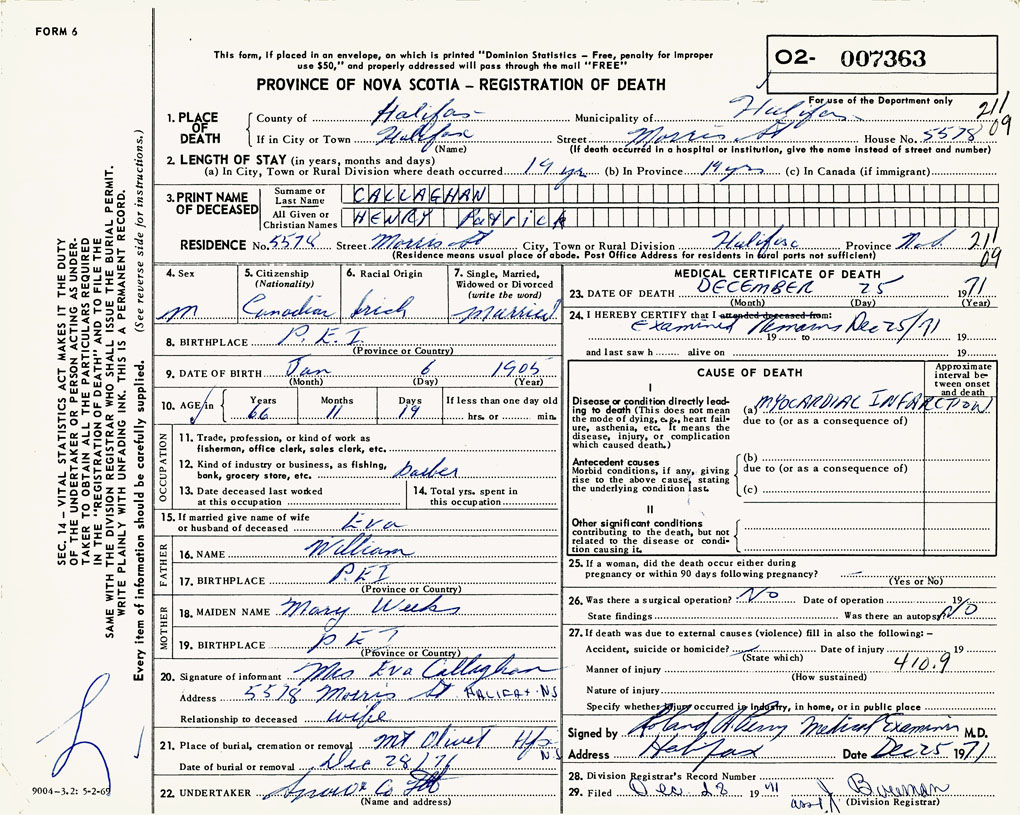 FORM 6
This form, if placed in an envelope, on which is printed "Dominion Statistics – Free, penalty for improper
use $50," and properly addressed will pass through the mail "FREE"
PROVINCE OF NOVA SCOTIA – REGISTRATION OF DEATH
02- 007363
For use of the Department only
211
09
1. PLACE OF DEATH
County of Halifax Municipality of Halifax
If in City or Town Halifax Street Morris St House No. 5578
(Name) (If death occurred in a hospital or institution, give the name instead of street and number)
2. LENGTH OF STAY (in years, months and days)
(a) In City, Town or Rural Division where death occurred 19 yrs (b) In Province 19 yrs (c) In Canada (if immigrant)
3. PRINT NAME OF DECEASED
Surname or Last Name CALLAGHAN
All Given or Christian Names HENRY Patrick
RESIDENCE No. 5578 Street Morris St City, Town or Rural Division Halifax Province N.S. 211
09
(Residence means usual place of abode. Post Office Address for residents in rural parts not sufficient)
4. Sex
m
5. Citizenship
(Nationality)
Canadian
6. Racial Origin
Irish
7. Single, Married,
Widowed or Divorced
(write the word)
Married
8. BIRTHPLACE P.E.I.
(Province or Country)
9. DATE OF BIRTH Jan 6 1905
(Month) (Day) (Year)
10. AGE in
Years Months Days If less than one day old
66 11 19 hrs. or min.
OCCUPATION
11. Trade, profession, or kind of work as
fisherman, office clerk, sales clerk, etc.
12. Kind of industry or business, as fishing,
bank, grocery store, etc. barber
13. Date deceased last worked
at this occupation
14. Total yrs. spent in
this occupation
15. If married give name of wife
or husband of deceased Eva
FATHER
16. NAME William
17. BIRTHPLACE P.E.I
(Province or Country)
MOTHER
18. MAIDEN NAME Mary Weeks
19. BIRTHPLACE P E I
(Province or Country)
20. Signature of informant Mrs Eva Callaghan
Address 5578 Morris St HALIFAX NS
Relationship to deceased wife
21. Place of burial, cremation or removal Mt Olivet Hfx
NS
Date of burial or removal Dec 28/71
22. UNDERTAKER Co
(Name and address)
MEDICAL CERTIFICATE OF DEATH
23. DATE OF DEATH DECEMBER 25 1971
(Month) (Day) (Year)
24. I HEREBY CERTIFY that I attended deceased from:
Examined Remains Dec 25/71
19 to 19
and last saw h alive on 19
CAUSE OF DEATH
Approximate
interval be-
tween onset
and death
I
Disease or condition directly lead-
ing to death (This does not mean
the mode of dying, e.g., heart fail-
ure, asthenia, etc. It means the
disease, injury, or complication
which caused death.)
(a) MYOCARDIAL INFARCTION
due to (or as a consequence of)
Antecedent causes
Morbid conditions, if any, giving
rise to the above cause, stating
the underlying condition last.
(b)
due to (or as a consequence of)
(c)
II
Other significant conditions
contributing to the death, but not
related to the disease or condi-
tion causing it.
25. If a woman, did the death occur either during
pregnancy or within 90 days following pregnancy?
(Yes or No)
26. Was there a surgical operation? No Date of operation 19
State findings Was there an autopsy No
27. If death was due to external causes (violence) fill in also the following: –
Accident, suicide or homicide? Date of injury 19
(State which)
Manner of injury 410.9
(How sustained)
Nature of injury
Specify whether injury occurred in industry, in home, or in public place
Signed by Roland Perry Medical Examiner M.D.
Address Halifax Date Dec 25 1971
28. Division Registrar's Record Number
29. Filed Dec. 28 1971 J Bowman
(Division Registrar)
SEC. 14 – VITAL STATISTICS ACT MAKES IT THE DUTY
OF THE UNDERTAKER OR PERSON ACTING AS UNDER-
TAKER TO OBTAIN ALL THE PARTICULARS REQUIRED
IN THE "REGISTRATION OF DEATH" AND TO FILE THE
SAME WITH THE DIVISION REGISTRAR WHO SHALL ISSUE THE BURIAL PERMIT.
WRITE PLAINLY WITH UNFADING INK. THIS IS A PERMANENT RECORD.
Every item of information should be carefully supplied. (See reverse side for instructions.)
9004-3.2: 5-2-69